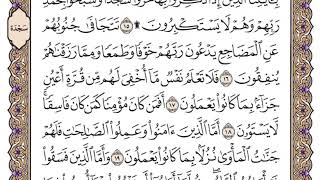 بِـَٔايَٰتِنَا ٱلَّذِينَ إِذَا ذُكِّرُوا۟ بِهَا خَرُّوا۟ سُجَّدًا وَسَبَّحُوا۟ بِحَمْدِ
رَبِّهِمْ وَهُمْ لَا يَسْتَكْبِرُونَ ۩ ١٥ تَتَجَافَىٰ جُنُوبُهُمْ
عَنِ ٱلْمَضَاجِعِ يَدْعُونَ رَبَّهُمْ خَوْفًا وَطَمَعًا وَمِمَّا رَزَقْنَٰهُمْ
يُنفِقُونَ ١٦ فَلَا تَعْلَمُ نَفْسٌ مَّآ أُخْفِىَ لَهُم مِّن قُرَّةِ أَعْيُنٍ
جَزَآءًۢ بِمَا كَانُوا۟ يَعْمَلُونَ ١٧ أَفَمَن كَانَ مُؤْمِنًا كَمَن كَانَ فَاسِقًا ۚ
لَّا يَسْتَوُۥنَ ١٨ أَمَّا ٱلَّذِينَ ءَامَنُوا۟ وَعَمِلُوا۟ ٱلصَّٰلِحَٰتِ فَلَهُمْ
جَنَّٰتُ ٱلْمَأْوَىٰ نُزُلًۢا بِمَا كَانُوا۟ يَعْمَلُونَ ١٩ وَأَمَّا ٱلَّذِينَ فَسَقُوا۟
سَجْدَة